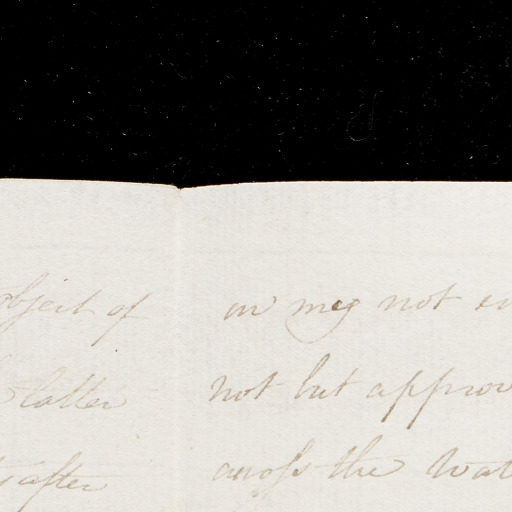 object of
latter
after
or may not
not but approv
across the Wat